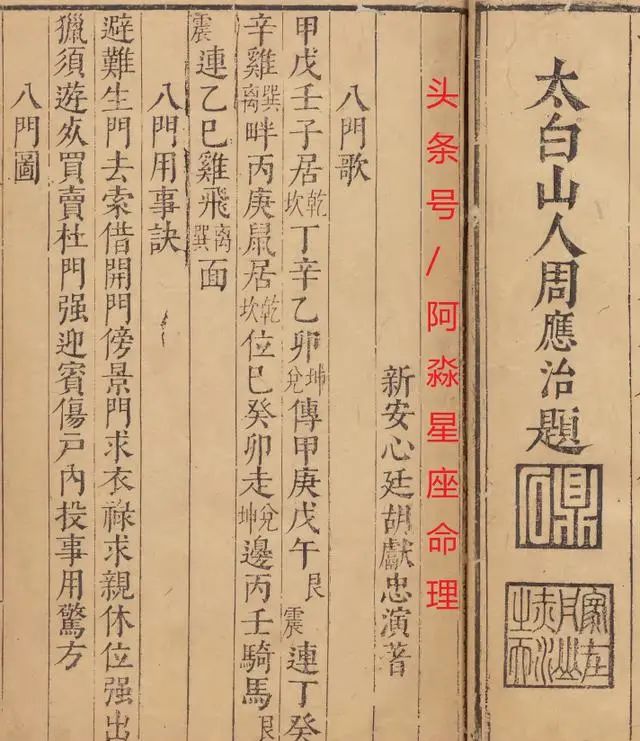 太白山人周應治題
头条号/阿淼星座命理
新安心廷胡獻忠演著
八門歌
甲戊壬子居乾坎丁辛乙卯坤兌傳甲庚戊午艮震連丁癸
辛雞巽離畔丙庚鼠居乾坎位巳癸卯走兌坤邊丙壬騎馬艮
震連乙巳雞飛離巽面
八門用事訣
避難生門去索借開門傍景門求衣祿求親休位强出
獵須遊買賣杜門强迎賓傷戶內投事用驚方
八門圖